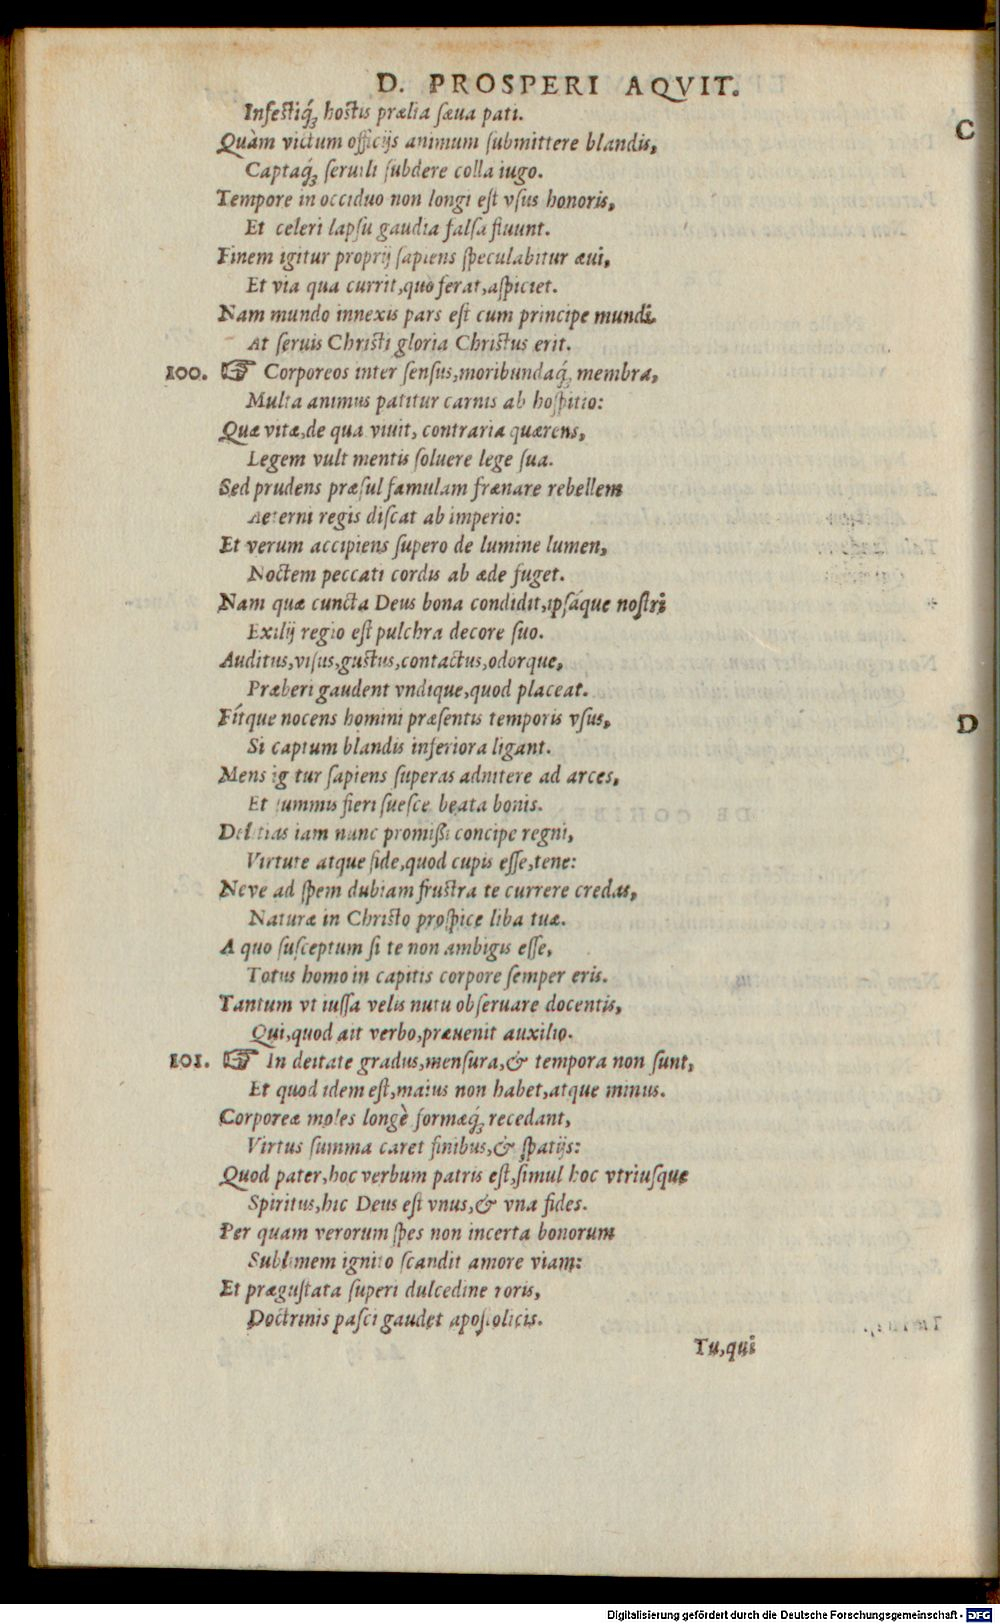 D. PROSPERI AQVIT.
Infestiq́; hostis prælia sæua pati.
C
Quàm victum officijs animum submittere blandis,
Captaq́; seruili subdere colla iugo.
Tempore in occiduo non longi est vsus honoris,
Et celeri lapsu gaudia falsa fluunt.
Finem igitur proprij sapiens speculabitur æui,
Et via qua currit, quo ferat, aspiciet.
Nam mundo innexis pars est cum principe mundi.
At seruis Christi gloria Christus erit.
100. ☞ Corporeos inter sensus, moribundaq́; membra,
Multa animus patitur carnis ab hospitio:
Quæ vitæ, de qua viuit, contraria quærens,
Legem vult mentis soluere lege sua.
Sed prudens præsul famulam frænare rebellem
Aeterni regis discat ab imperio:
Et verum accipiens supero de lumine lumen,
Noctem peccati cordis ab æde fuget.
Nam quæ cuncta Deus bona condidit, ipsáque nostri
Exilij regio est pulchra decore suo.
Auditus, visus, gustus, contactus, odorque,
Præberi gaudent vndique, quod placeat.
Fítque nocens homini præsentis temporis vsus,
D
Si captum blandis inferiora ligant.
Mens igitur sapiens superas adnitere ad arces,
Et summis fieri suesce beata bonis.
Delitias iam nunc promissi concipe regni,
Virtute atque fide, quod cupis esse, tene:
Neve ad spem dubiam frustra te currere credas,
Naturæ in Christo prospice liba tuæ.
A quo susceptum si te non ambigis esse,
Totus homo in capitis corpore semper eris.
Tantum vt iussa velis nutu obseruare docentis,
Qui, quod ait verbo, præuenit auxilio.
101. ☞ In deitate gradus, mensura, & tempora non sunt,
Et quod idem est, maius non habet, atque minus.
Corporeæ moles longè formæq́; recedant,
Virtus summa caret finibus, & spatijs:
Quod pater, hoc verbum patris est, simul hoc vtriusque
Spiritus, hic Deus est vnus, & vna fides.
Per quam verorum spes non incerta bonorum
Sublimem ignito scandit amore viam:
Et prægustata superi dulcedine roris,
Doctrinis pasci gaudet apostolicis.
Tu, qui
Digitalisierung gefördert durch die Deutsche Forschungsgemeinschaft - DFG